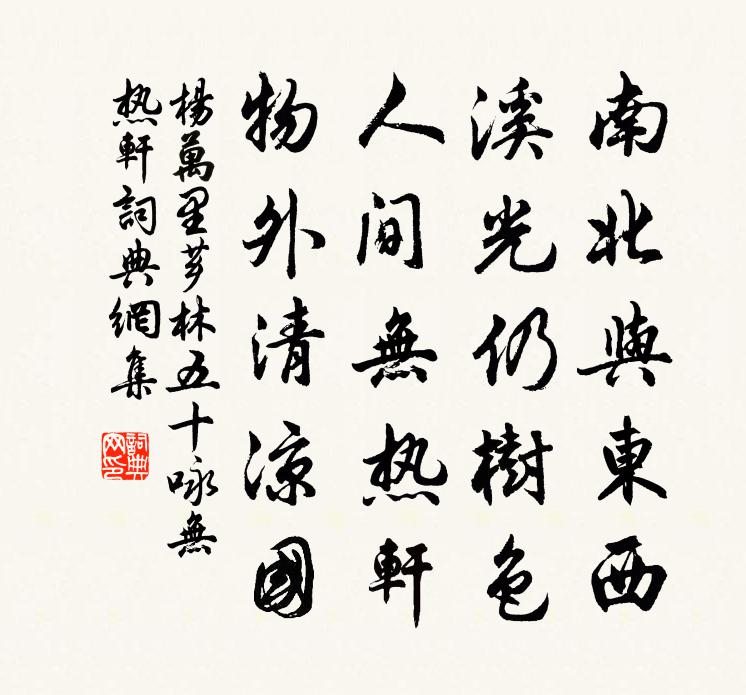 南北與東西
溪光仍樹色
人间無热軒
物外清涼國
楊萬里芗林五十咏無
热軒詞典網集
詞典网印